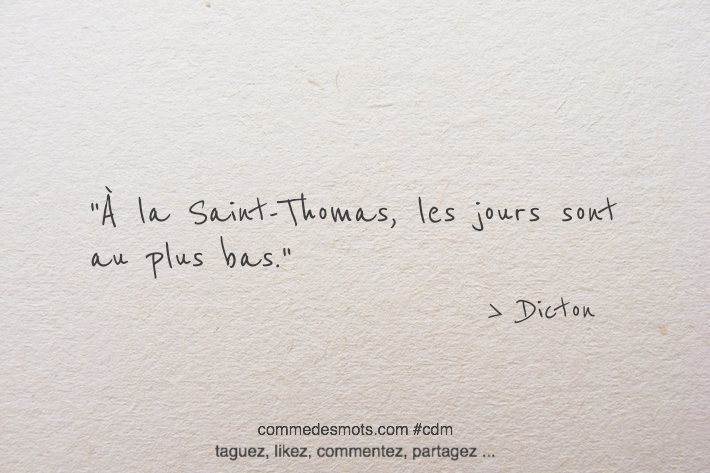 "À la Saint-Thomas, les jours sont
au plus bas."
> Dicton
commedesmots.com #cdm
taguez, likez, commentez, partagez ...